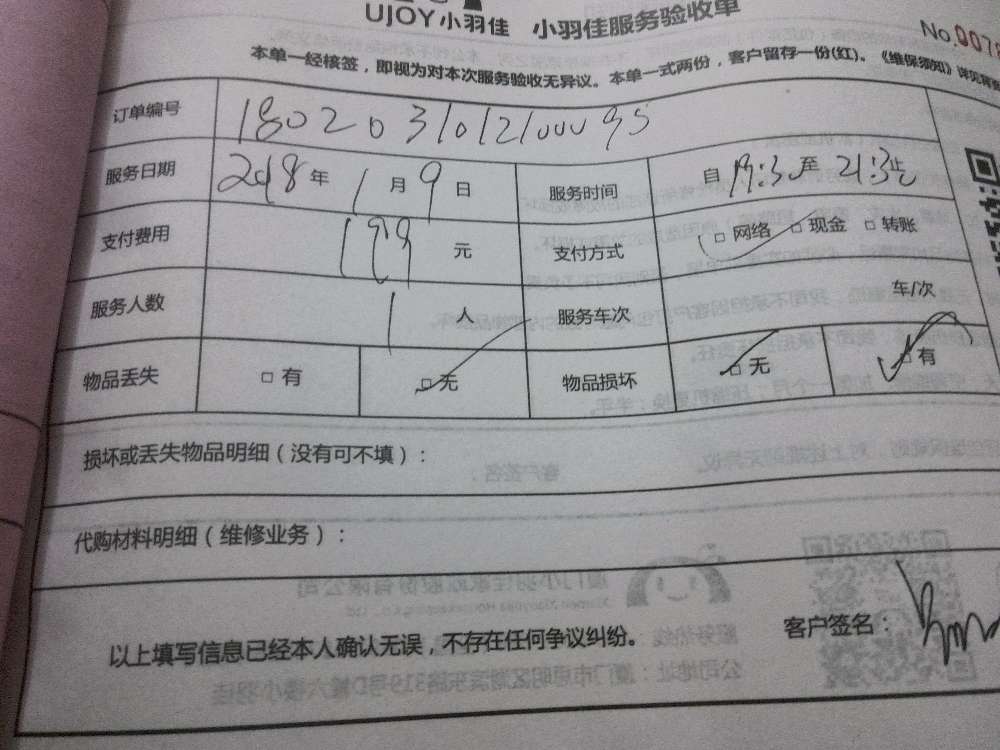 UJOY小羽佳 小羽佳服务验收单
No.007
本单一经核签，即视为对本次服务验收无异议。本单一式两份，客户留存一份(红)。《维保须知》详见背
订单编号 1802031012100095
服务日期 2018年 1月9日 服务时间 自19:30至21:30止
支付费用 199元 支付方式 □网络 □现金 □转账
服务人数 1人 服务车次 车/次
物品丢失 □有 □无 物品损坏 □无 □有
损坏或丢失物品明细（没有可不填）：
代购材料明细（维修业务）：
以上填写信息已经本人确认无误，不存在任何争议纠纷。
客户签名：